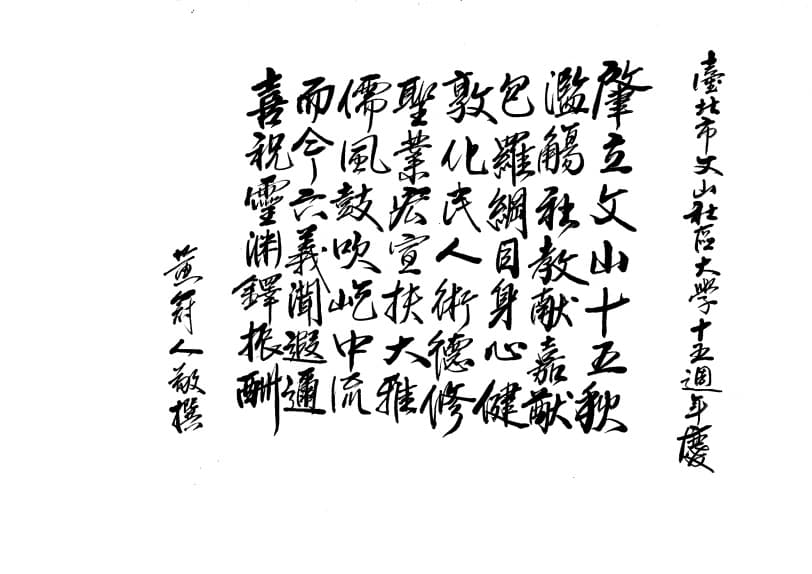 臺北市文山社區大學十五週年慶
肇立文山十五秋
濫觴社教献嘉猷
包羅綱目身心健
敦化民人術德修
聖業宏宣扶大雅
儒風鼓吹屹中流
而今六義聞遐邇
喜祝靈渊鐸振酬
黃冠人敬撰